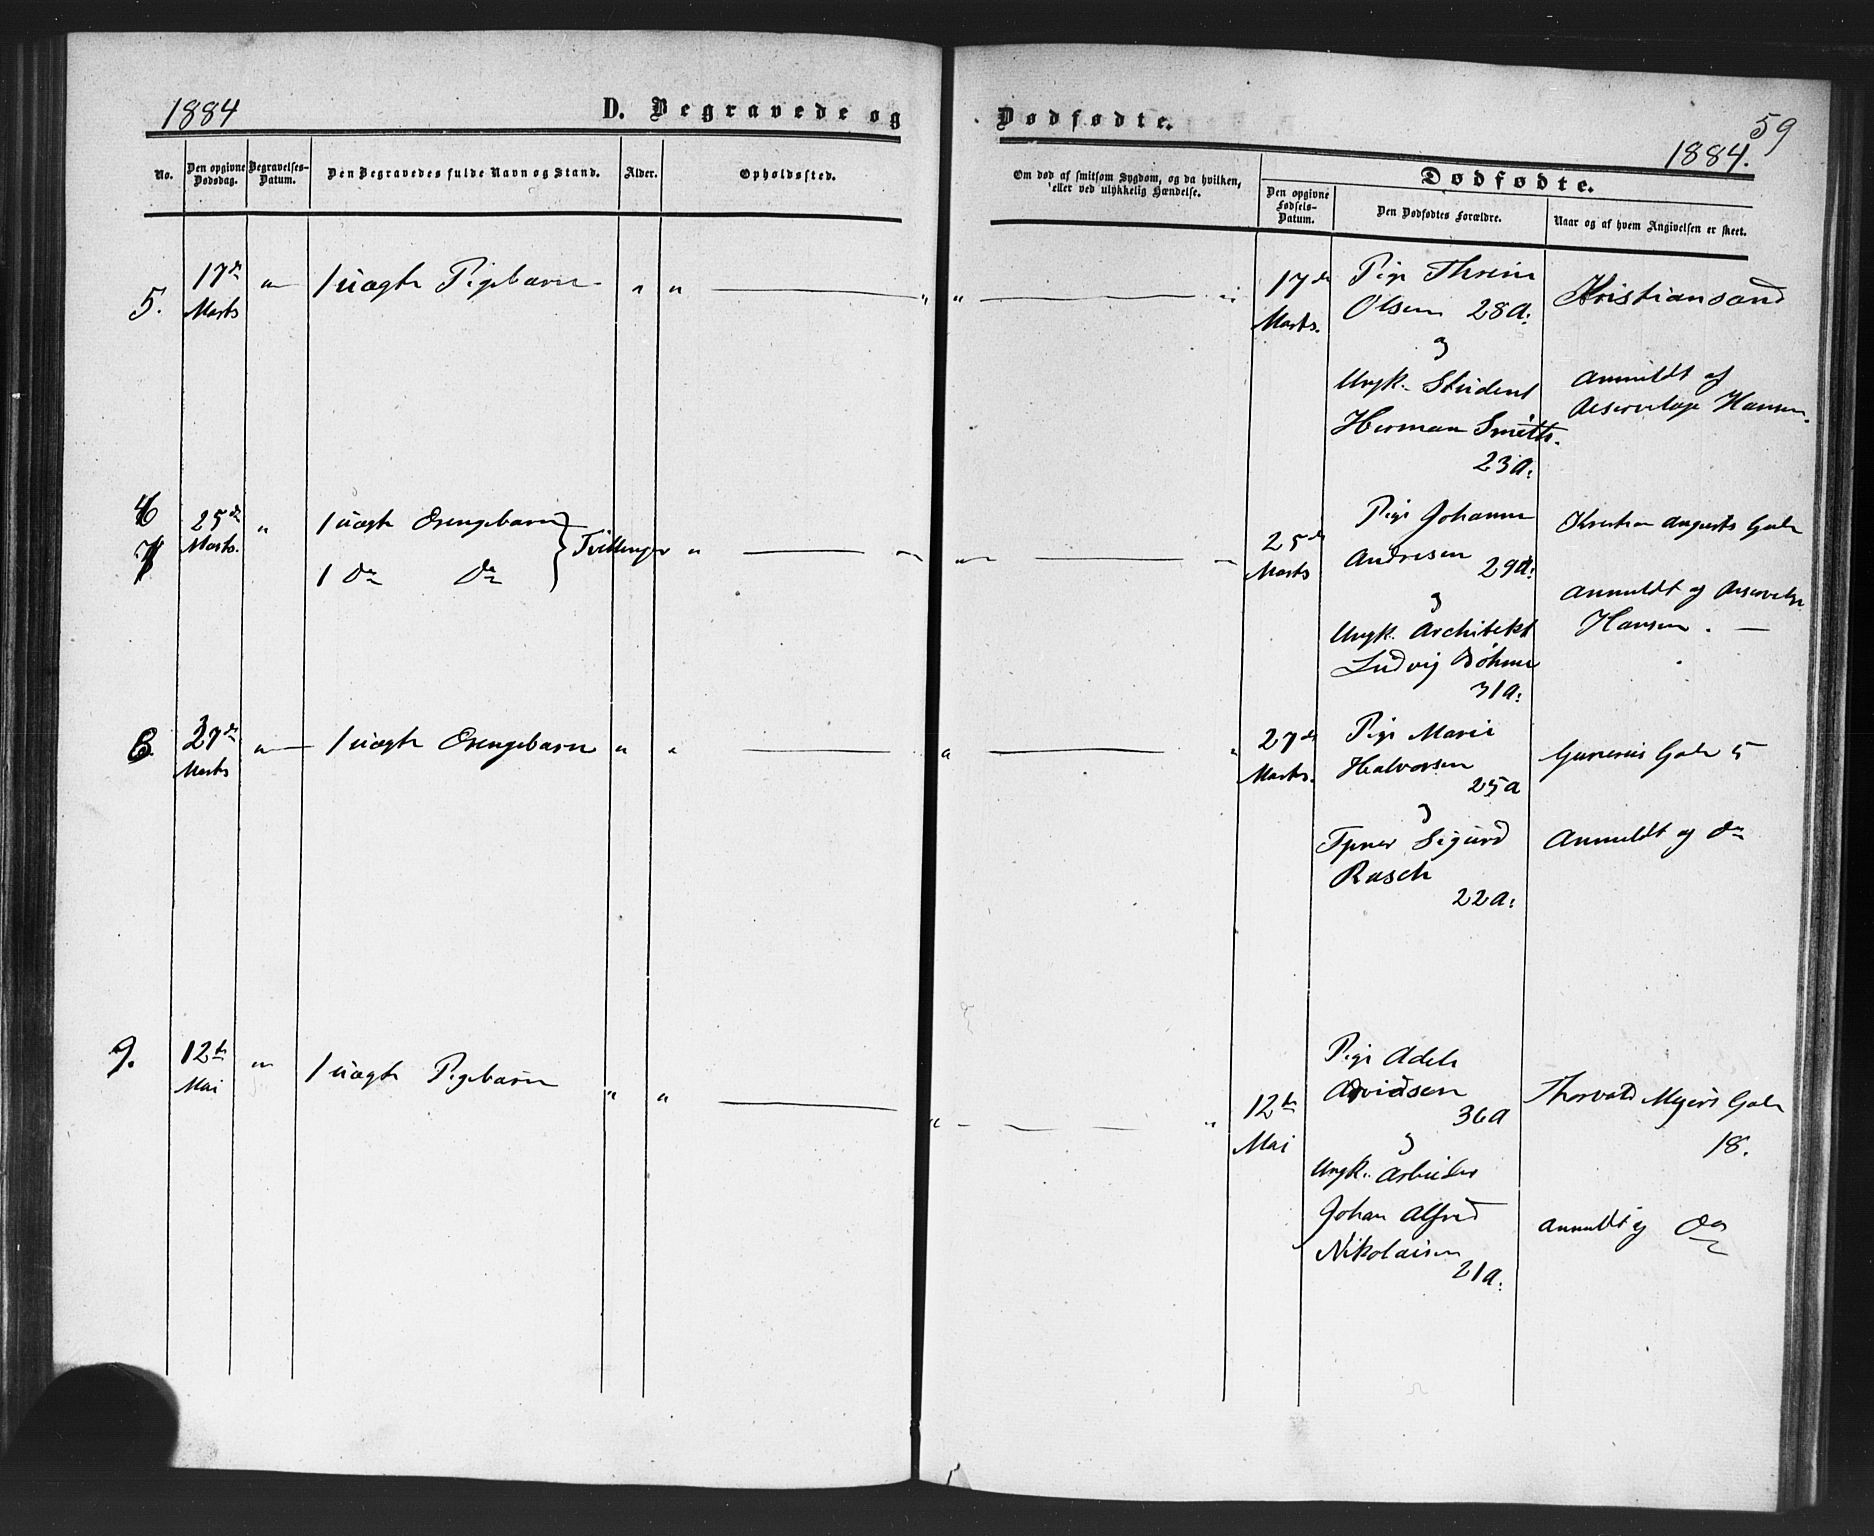 1884
D. Begravede og
Dødfødte.
59
1884.
No.
Den opgivne Dødsdag.
Begravelses-Datum.
Den Begravedes fulde Navn og Stand.
Alder.
Opholdssted.
Om død af smitsom Sygdom, og da hvilken,
eller ved ulykkelig Hændelse.
Dødfødte.
Den opgivne Fødsels-Datum.
Den Dødfødtes Forældre.
Naar og af hvem Angivelsen er skeet.
5.
17de
Marts
1 uægte Pigebarn
17de
Marts.
Pige Thrine
Olsen 28 A:
og
Ungk. Student
Herman Smith.
23 A:
Kristiansand
Anmeldt af
Hansen.
7
25de
Marts.
1 uægte Drengebarn
1 do do
Tvillinger
25de
Marts
Pige Johanne
Andresen 29 A:
og
Ungk. Architekt
Ludvig Bøhme
31 A:
Kristian Augusts Gade
Anmeldt af
Hansen.
8
27de
Marts
1 uægte Drengebarn
27de
Marts.
Pige Marie
Halvorsen
25 A
og
Sigurd
Rasch
22 A:
Gunerius Gade 5
Anmeldt af do
9.
12te
Mai
1 uægte Pigebarn
12te
Mai
Pige Adele
Arvidsen
36 A
og
Ungk. Arbeider
Johan Alfred
Nikolaisen
21 A:
Thorvald Meyers Gade
18.
Anmeldt af do